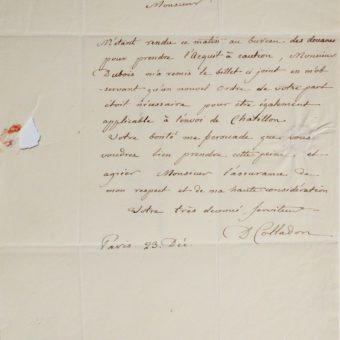 Monsieur
M'étant rendu ce matin au bureau des douanes
pour prendre l'acquit à caution, Monsieur
Dubois m'a remis le billet ci joint en m'ob
servant qu'un nouvel ordre de votre part
étoit nécessaire pour être également
applicable à l'envoi de Châtillon.
Votre bonté me persuade que vous
voudrez bien prendre cette peine, et
agréer Monsieur l'assurance de
mon respect et de ma haute considération
Votre très dévoué serviteur
D Colladon
Paris 23. Déc